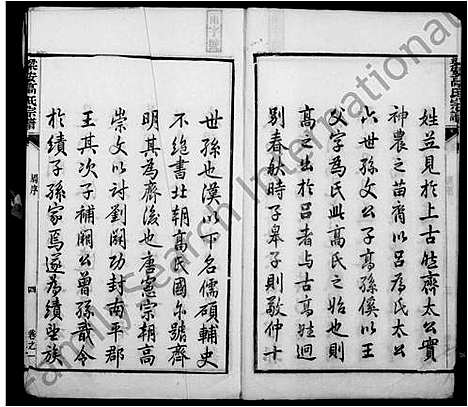 梁安高氏宗譜
姓並見於上古然齊太公實
神農之苗裔以呂爲氏太公
六世孫文公子高孫傒以王
父字爲氏此高氏之始也則
高之出於呂者與古高姓迥
別春秋時子皋子則敬仲十
世孫也漢以下名儒碩輔史
不絶書北朝高氏國尔號齊
明其爲齊後也唐憲宗朝高
崇文以討劉闢功封南平郡
王其次子補闕公曾孫戢令
於績子孫家焉遂爲績望族
梁安高氏宗譜
序
四
卷之一
FamilySearch International